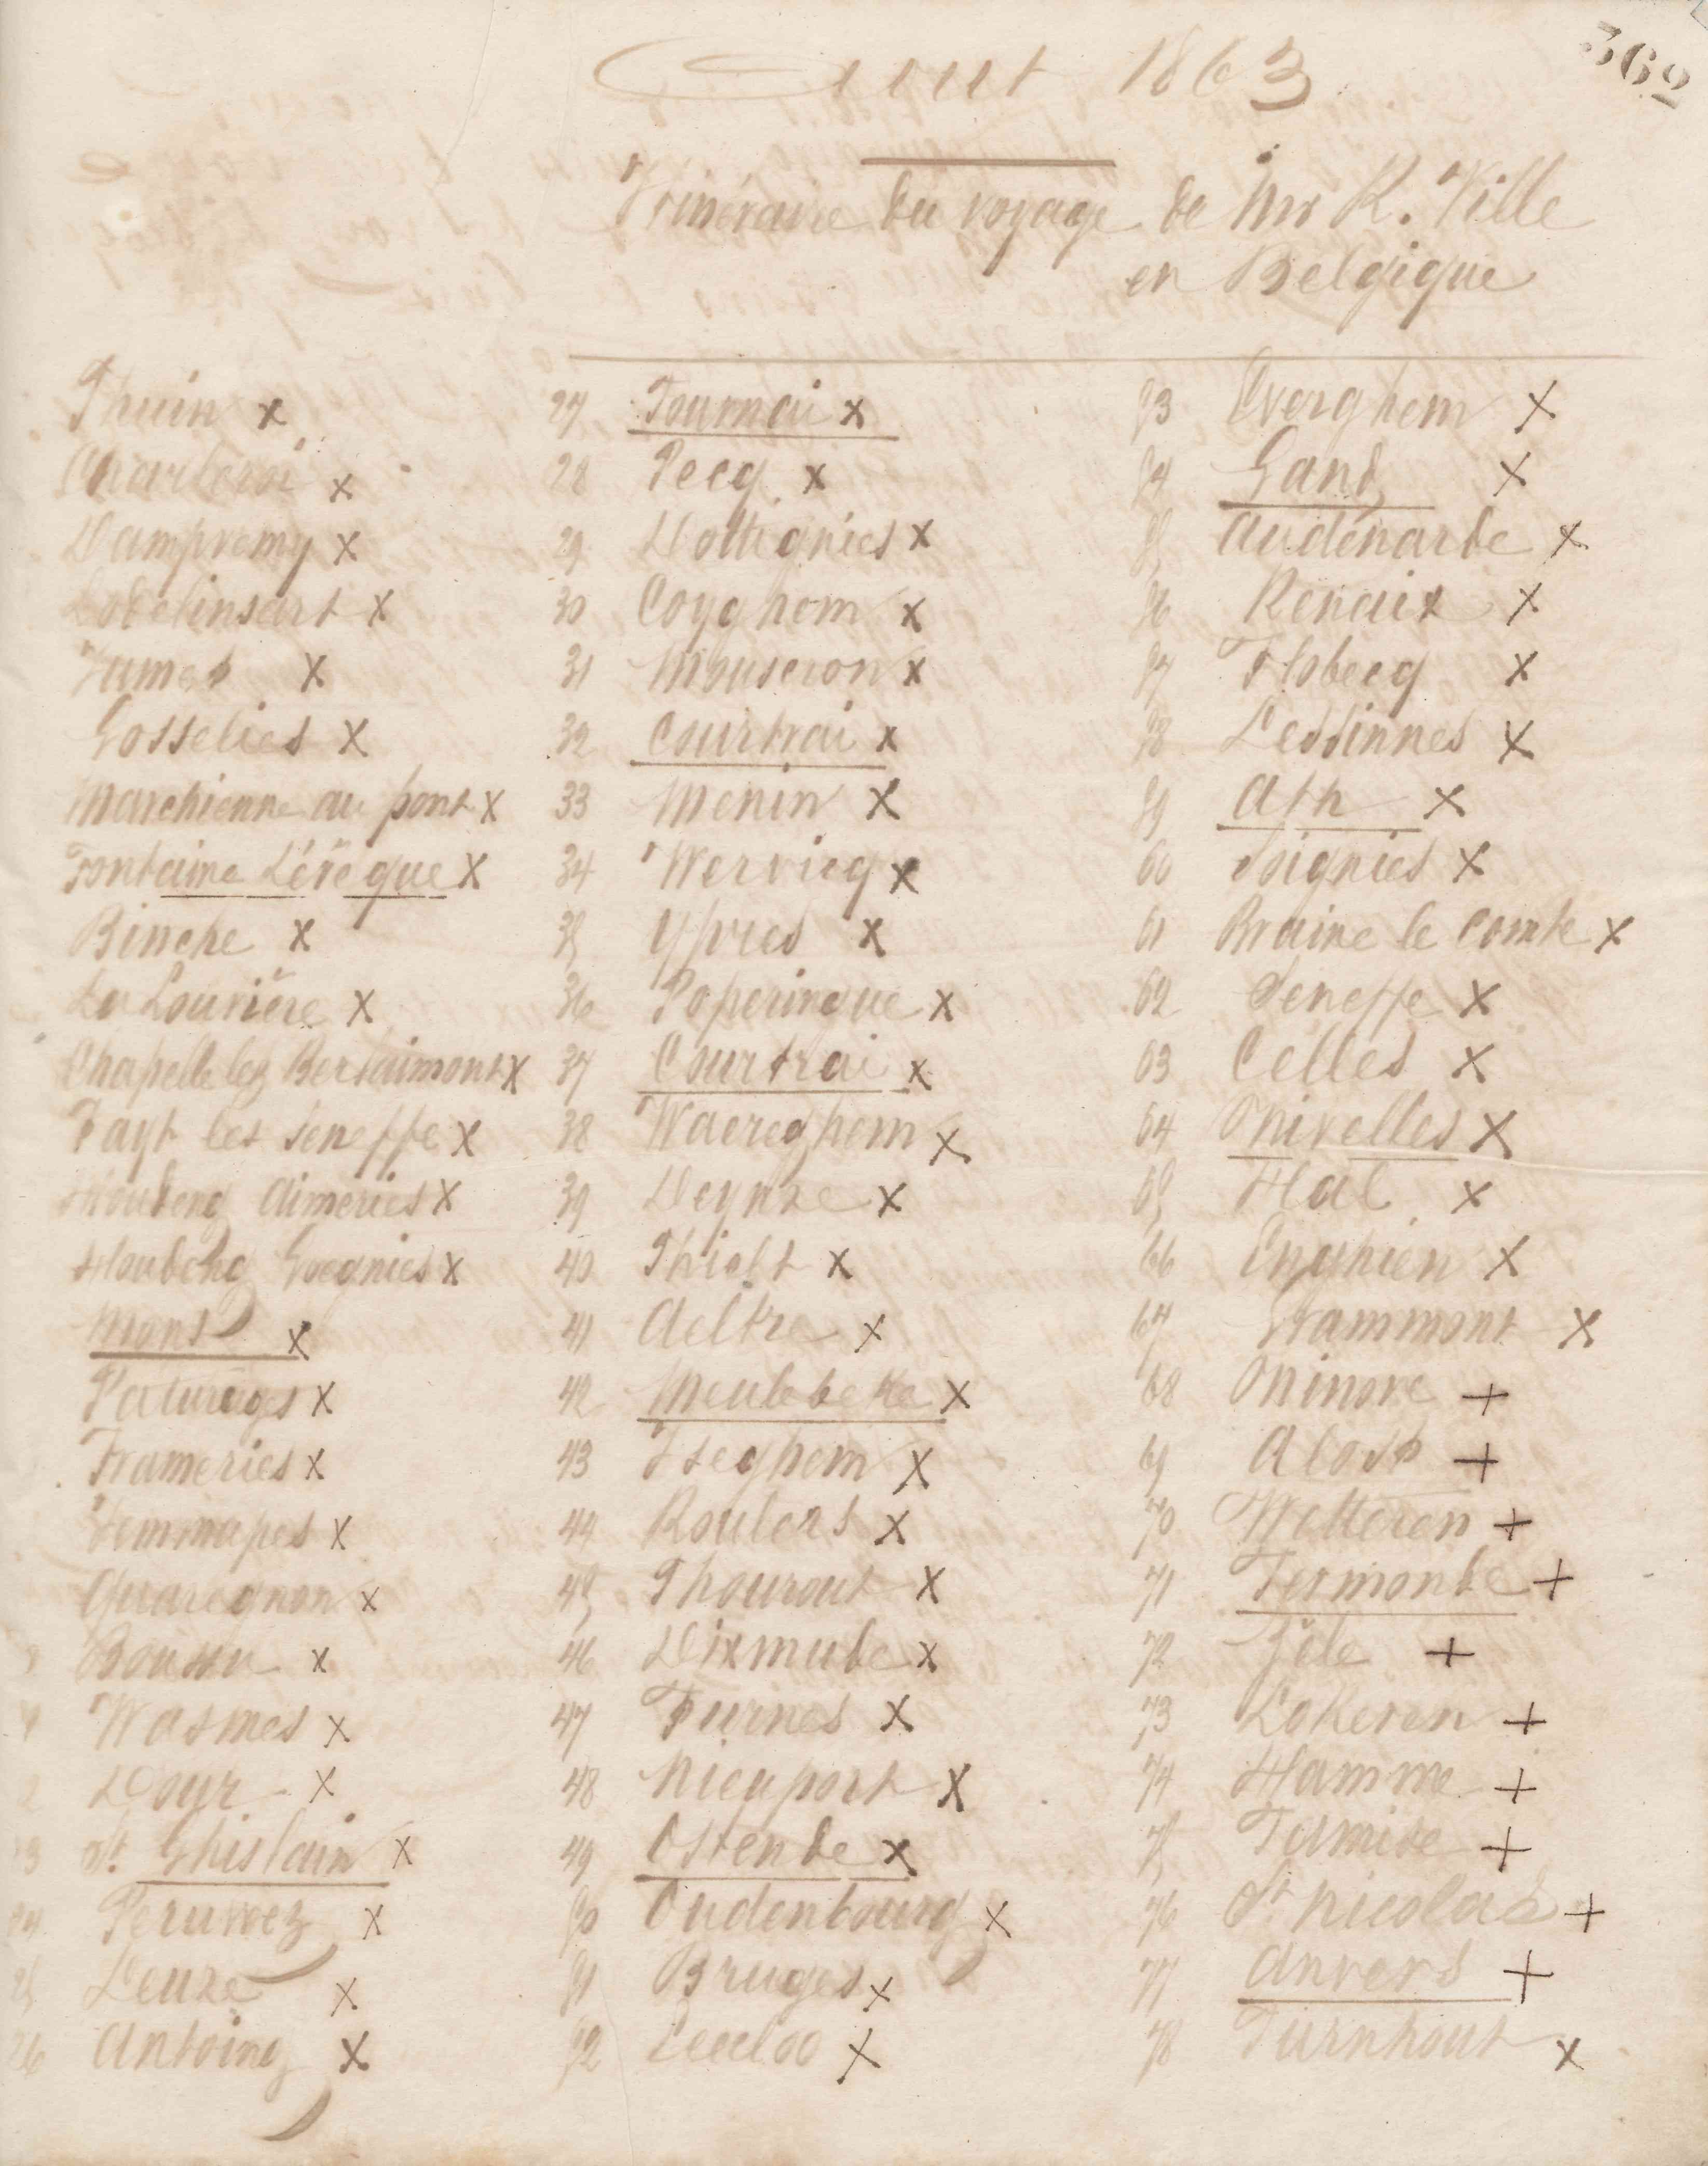 362
Aout 1863
Itinéraire du voyage de Mr R. Ville
en Belgique
Thuin x
Charleroi x
Dampremy x
Lodelinsart x
Jumet x
Gosselies x
Marchienne au pont x
Fontaine L'évêque x
Binche x
La Louvière x
Chapelle lez Berlaimont x
Fayt lez Seneffe x
Houdeng Aimeries x
Houdeng Goegnies x
Mons x
Paturages x
Frameries x
Jemmapes x
Quaregnon x
Boussu x
Wasmes x
Dour x
23 St. Ghislain x
24 Peruwez x
25 Leuze x
26 Antoing x
27 Tournai x
28 Pecq x
29 Dottignies x
30 Coyghem x
31 Mouscron x
32 Courtrai x
33 Menin x
34 Wervicq x
35 Ypres x
36 Poperingue x
37 Courtrai x
38 Waereghem x
39 Deynze x
40 Thielt x
41 Aeltre x
42 Meulebeke x
43 Iseghem x
44 Roulers x
45 Thourout x
46 Dixmude x
47 Furnes x
48 Nieuport x
49 Ostende x
50 Oudenbourg x
51 Bruges x
52 Eecloo x
53 Everghem x
54 Gand x
55 Audénarde x
56 Renaix x
57 Flobecq x
58 Lessinnes x
59 Ath x
60 Soignies x
61 Braine le Comte x
62 Seneffe x
63 Celles x
64 Nivelles x
65 Hal x
66 Enghien x
67 Grammont x
68 Ninove +
69 Alost +
70 Wetteren +
71 Termonde +
72 Zele +
73 Lokeren +
74 Hamme +
75 Tamise +
76 St Nicolas +
77 Anvers +
78 Turnhout x